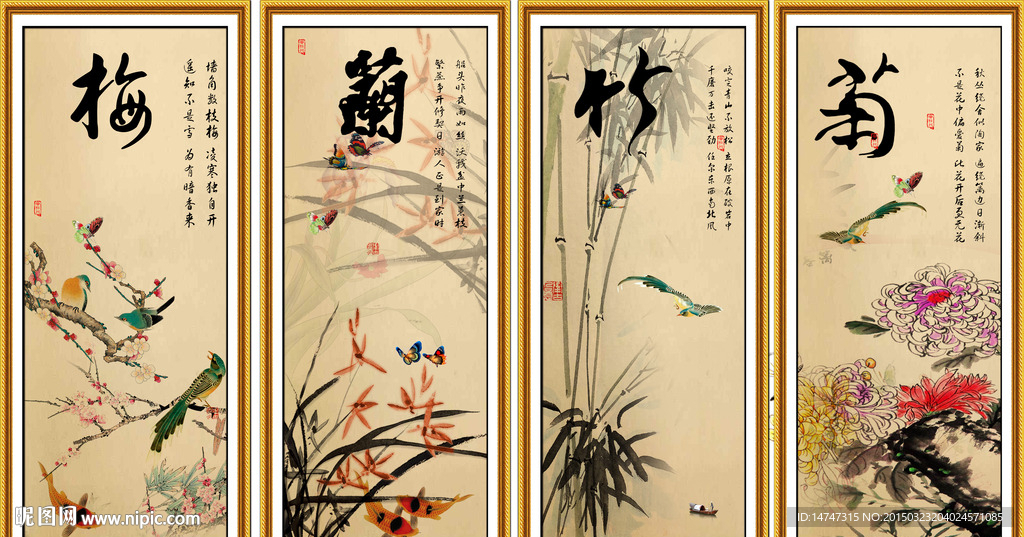 梅
墙角数枝梅 凌寒独自开
遥知不是雪 为有暗香来
蘭
船头昨夜雨如丝 沃我盆中兰蕙枝
繁蕊争开修禊日 游人正是到家时
竹
咬定青山不放松 立根原在破岩中
千磨万击还坚劲 任尔东西南北风
菊
秋丛绕舍似陶家 遍绕篱边日渐斜
不是花中偏爱菊 此花开后更无花
昵图网 www.nipic.com
ID:14747315 NO:20150323204024571085